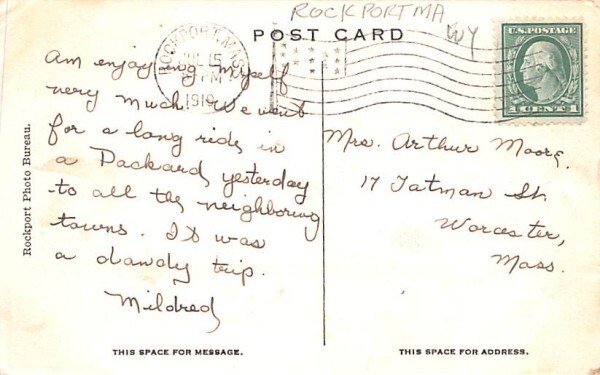 ROCKPORT MA
WY
POST CARD
ROCKPORT, MASS.
JUL 15
1919
U.S. POSTAGE
1 CENT 1
Am enjoying myself
very much. We went
for a long ride in
a Packard yesterday
to all the neighboring
towns. It was
a dandy trip.
Mildred
Mrs. Arthur Moore.
17 Tatman St.
Worcester,
Mass.
Rockport Photo Bureau.
THIS SPACE FOR MESSAGE.
THIS SPACE FOR ADDRESS.